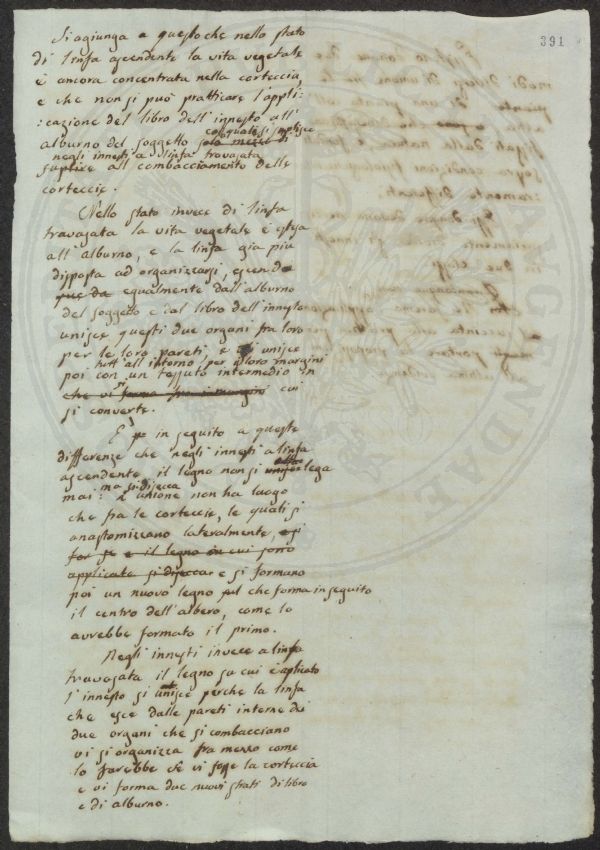 391
Si agiunga a questo che nello stato
di linfa ascendente la vita vegetale
è ancora concentrata nella corteccia
e che non si può pratticare l'appli:
:cazione del libro dell'innesto all'
alburno del soggetto solo mezzo di
col quale si supplisce
negli innesti a linfa travasata
supplice all combacciamento delle
corteccie.
Nello stato invece di linfa
travasata la vita vegetale è estesa
all'alburno, e la linfa già più
disposta ad organizzarsi, escendo
que da egualmente dall'alburno
del soggetto e dal libro dell'innesto
unisce questi due organi fra loro
per le loro pareti, e unisce
tutt'all'intorno per i loro margini
poi con un tessuto intermedio in
che vi forma fra i margini cui
si converte.
È in seguito a queste
differenze che negli innesti a linfa
ascendente il legno non si unisce lega
mai: ma si disecca
l'unione non ha luogo
che fra le corteccie, le quali si
anastomizzano lateralmente, e si
for se e il legno su cui sono
applicate si diseccar e si formano
poi un nuovo legno sul che forma in seguito
il centro dell'albero, come lo
avrebbe formato il primo.
Negli innesti invece a linfa
travasata il legno su cui è aplicato
l'innesto si unisce perche la linfa
che esce dalle pareti interne dei
due organi che si combacciano
vi si organizza fra mezzo come
lo farebbe se vi fosse la corteccia
e vi forma due nuovi strati di libro
e di alburno.